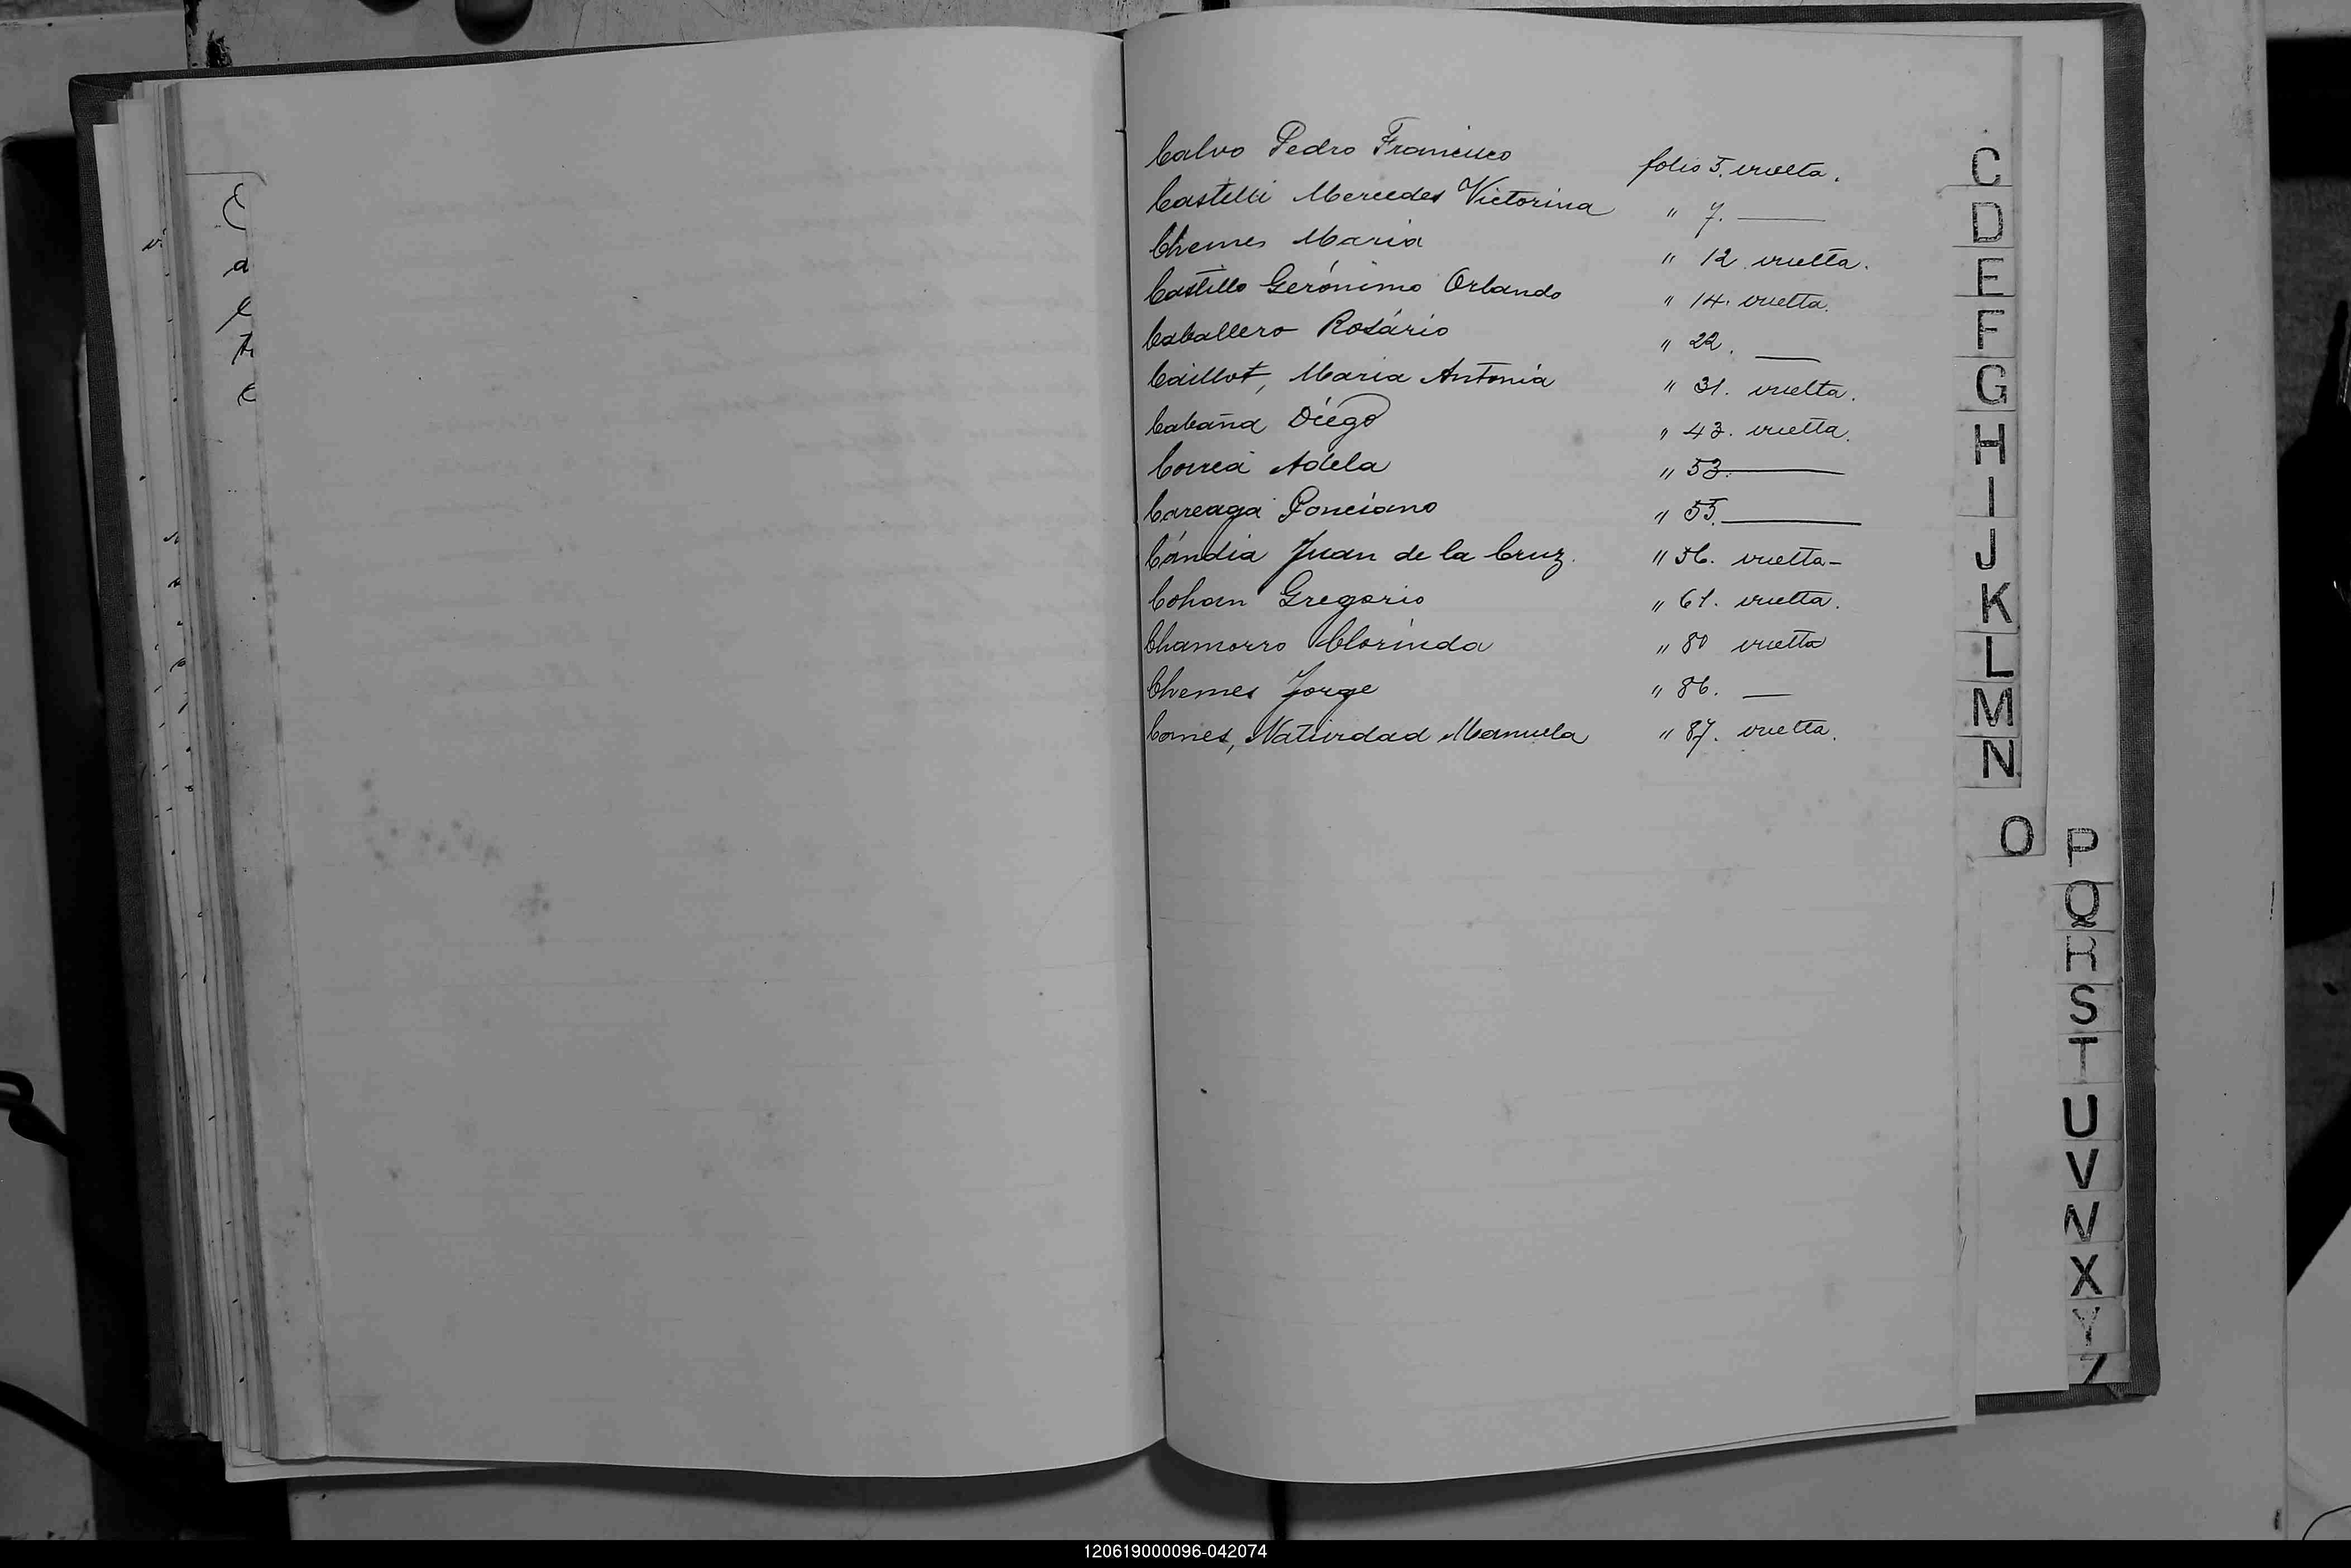 Calvo Pedro Francisco folio 5. vuelta.
Castelli Mercedes Victorina " 7. ——
Chemes Maria " 12 vuelta.
Castillo Gerónimo Orlando " 14. vuelta.
Caballero Rosário " 22. —
Caillot, Maria Antonia " 31. vuelta.
Cabaña Diego " 43. vuelta.
Correa Adela " 53. ——
Careaga Ponciano " 55. ——
Cándia Juan de la Cruz. " 56. vuelta-
Cohan Gregorio " 61. vuelta.
Chamorro Clorinda " 80 vuelta
Chemes Jorge " 86. —
Comes, Natividad Manuela " 87. vuelta.
C
D
E
F
G
H
I
J
K
L
M
N
O
P
Q
R
S
T
U
V
X
Y
Z
120619000096-042074